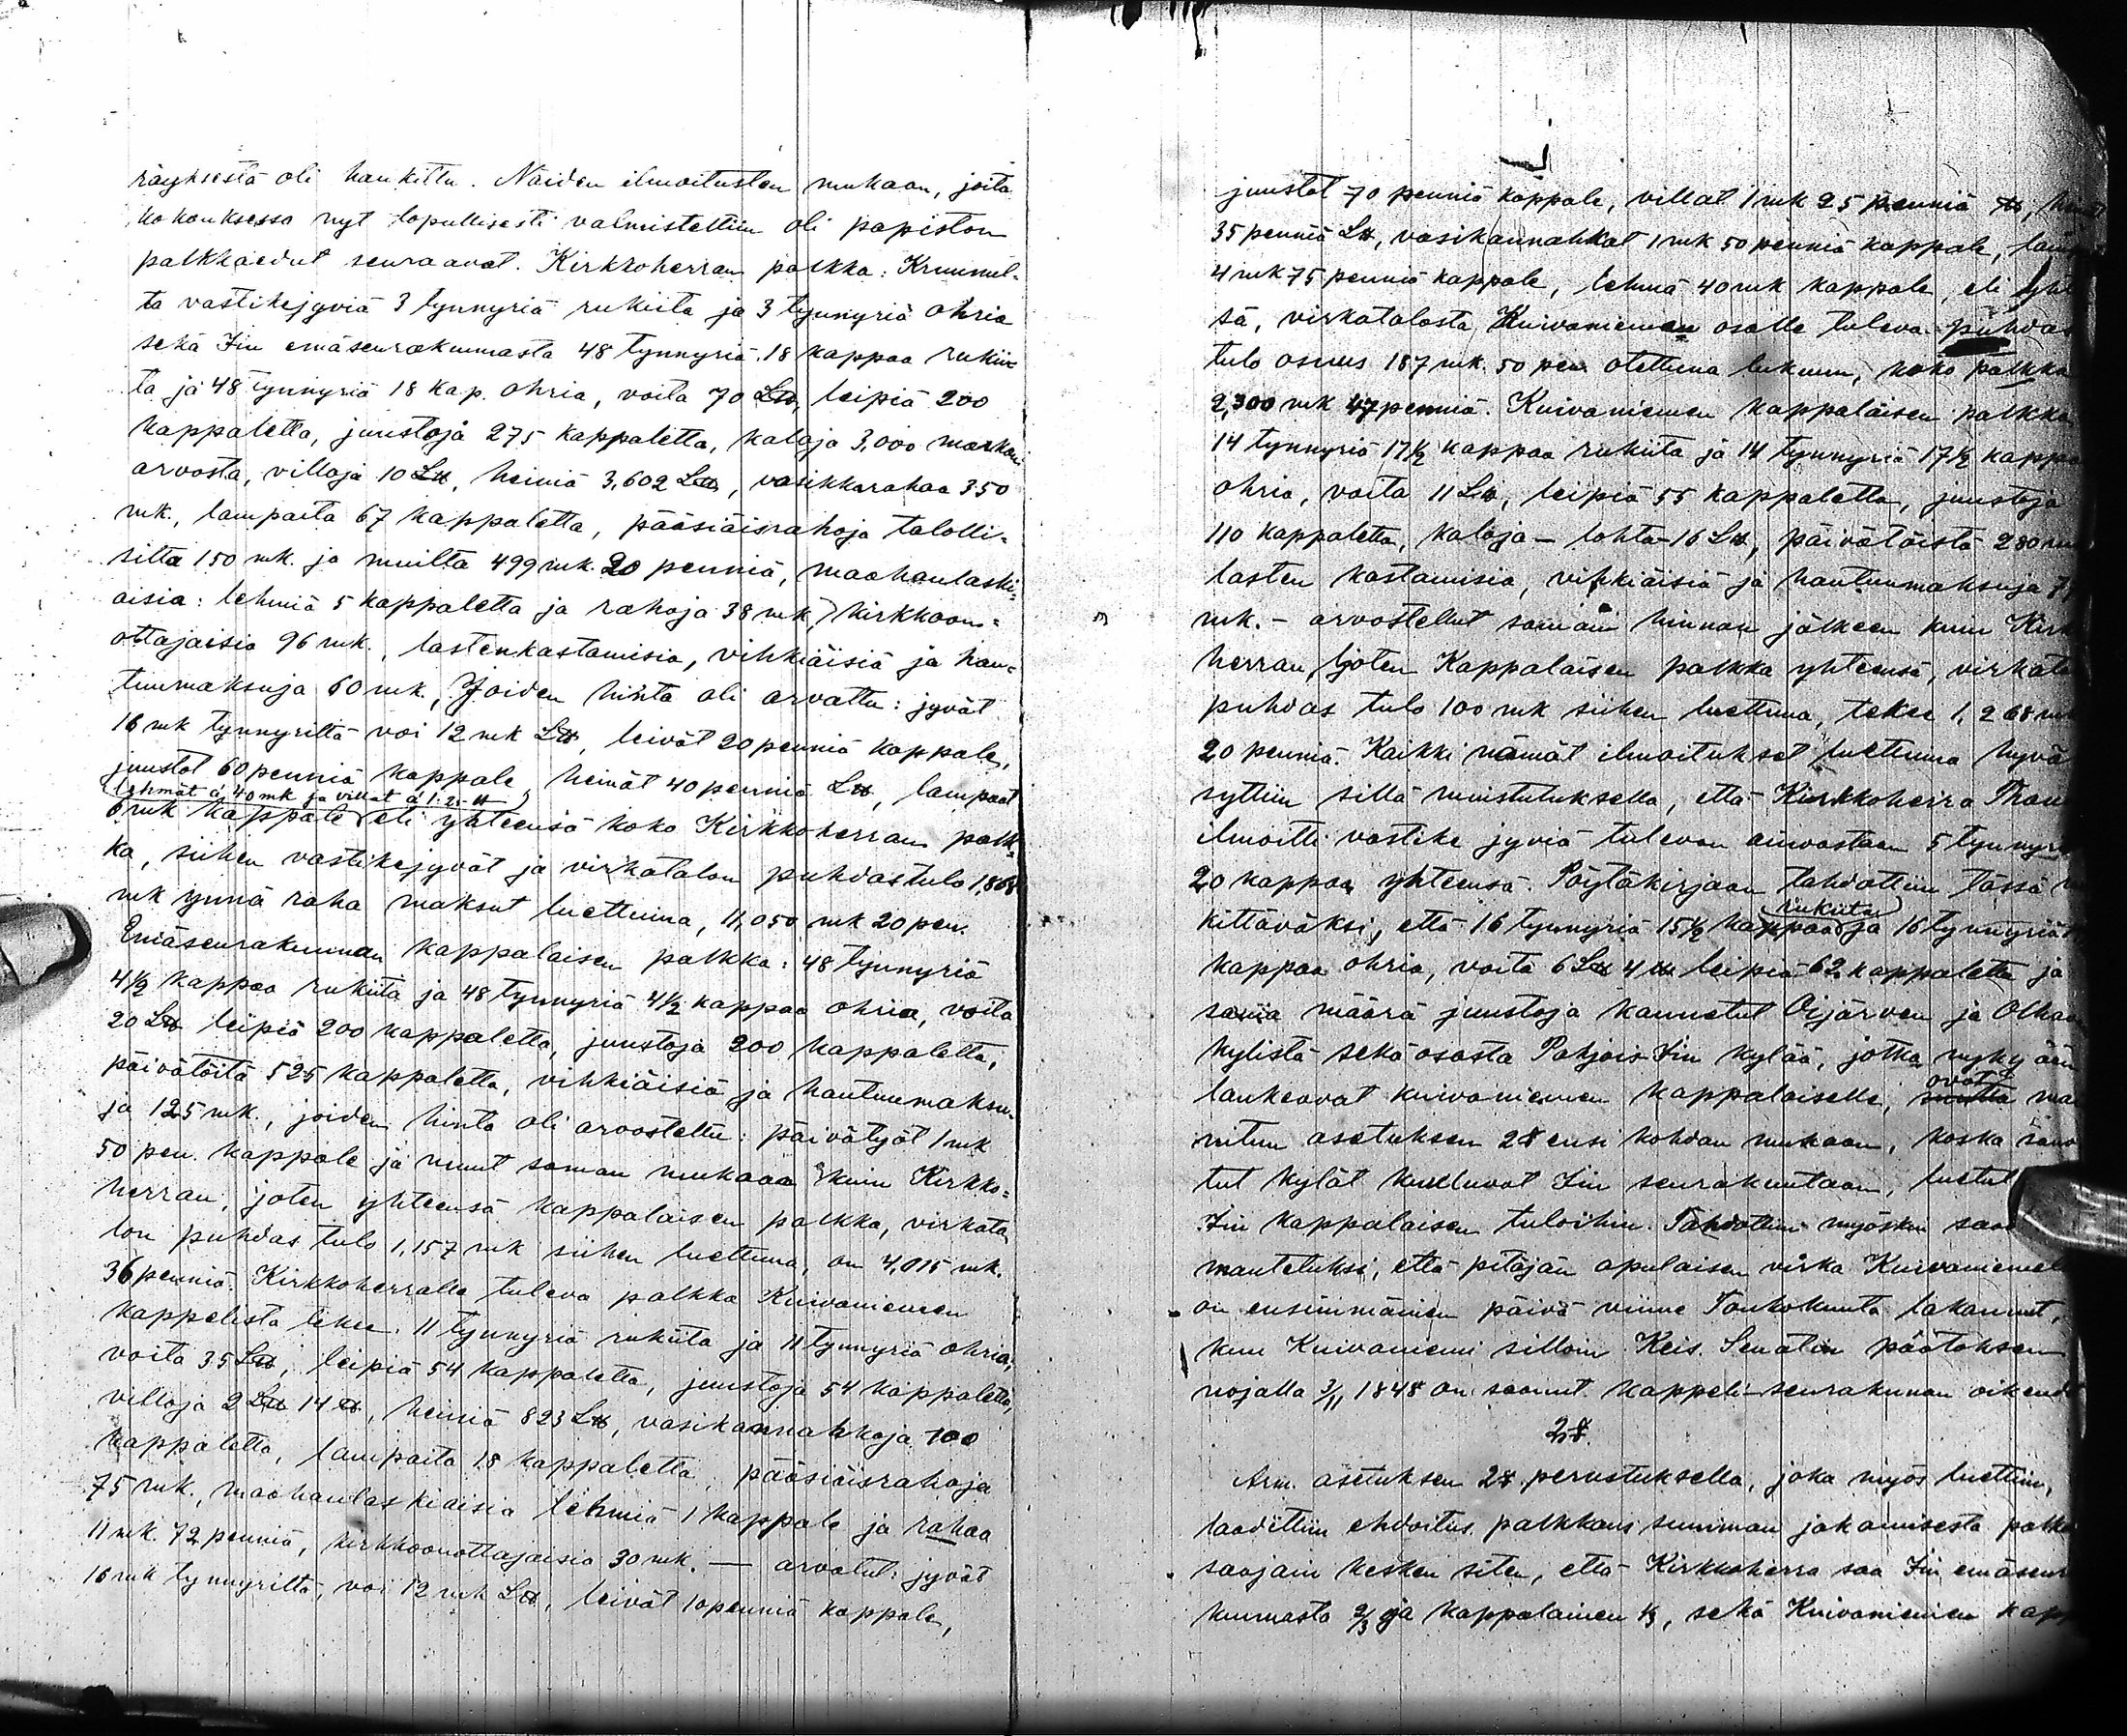 räyksestä oli hankittu. Näiden ilmoitusten mukaan, joita
kokouksessa nyt lopullisesti valmistettiin oli papiston
palkkaedut seuraavat. Kirkkoherran palkka: Kruunul-
ta vastikejyviä 3 tynnyriä rukiita ja 3 tynnyriä ohria
sekä Iin emäseurakunnasta 48 tynnyriä 18 kappaa rukii-
ta ja 48 tynnyriä 18 kap. ohria, voita 70 L℔, leipiä 200
kappaletta, juustoja 275 kappaletta, kaloja 3,000 markan
arvosta, villoja 10 L℔, heiniä 3,602 L℔, vasikkarahaa 350
mk., lampaita 67 kappaletta, pääsiäisrahoja talolli-
silta 150 mk. ja muilta 499 mk. 20 penniä, maahanlaski-
aisia: lehmiä 5 kappaletta ja rahoja 38 mk, kirkkoon-
ottajaisia 96 mk., lastenkastamisia, vihkiäisiä ja hau-
tuumaksuja 60 mk., Joiden hinta oli arvattu: jyvät
16 mk tynnyriltä voi 12 mk L℔, leivät 20 penniä kappale,
juustot 60 penniä kappale, heinät 40 penniä L℔, lampaat
lehmät á 40 mk ja villat á 1: 2: ℔
6 mk kappale eli yhteensä koko Kirkkoherran palk-
ka, siihen vastikejyvät ja virkatalon puhdastulo 1,868
mk ynnä raha maksut luettuina, 11,050 mk 20 pen.
Emäseurakunnan kappalaisen palkka: 48 tynnyriä
4½ kappaa rukiita ja 48 tynnyriä 4½ kappaa ohria, voita
20 L℔ leipiä 200 kappaletta, juustoja 200 kappaletta,
päivätöitä 525 kappaletta, vihkiäisiä ja hautuumaksu-
ja 125 mk., joiden hinta oli arvosteltu: päivätyöt 1 mk
50 pen. kappale ja muut saman mukaan kuin Kirkko-
herran, joten yhteensä kappalaisen palkka, virkata-
lon puhdas tulo 1,157 mk siihen luettuna, on 4,015 mk.
36 penniä. Kirkkoherralle tuleva palkka Kuivaniemen
kappelista tekee: 11 tynnyriä rukiita ja 11 tynnyriä ohria,
voita 35 L℔, leipiä 54 kappaletta, juustoja 54 kappaletta,
villoja 2 L℔ 14 ℔, heiniä 823 L℔, vasikannahkoja 100
kappaletta, lampaita 18 kappaletta, pääsiäisrahoja
75 mk., maahanlaskiaisia lehmiä 1 kappale ja rahaa
11 mk. 72 penniä, kirkkoonottajaisia 30 mk. — arvatut: jyvät
16 mk tynnyriltä, voi 12 mk L℔, leivät 10 penniä kappale,
juustot 70 penniä kappale, villat 1 mk 25 penniä ℔,
35 penniä L℔, vasikannahkat 1 mk 50 penniä kappale,
4 mk 75 penniä kappale, lehmä 40 mk kappale, eli
sä, virkatalosta Kuivaniemen osalle tuleva puhdas
tulo osuus 187 mk. 50 pen otettuna lukuun, koko palkka
2,300 mk 47 penniä. Kuivaniemen kappalaisen palkka
14 tynnyriä 17½ kappaa rukiita ja 14 tynnyriä 17½ kappaa
ohria, voita 11 L℔, leipiä 55 kappaletta, juustoja
110 kappaletta, kaloja – lohta – 16 L℔, päivätöistä 280
lasten kastamisia, vihkiäisiä ja hautuumaksuja
mk. – arvostellut saman hinnan jälkeen kuin Kirk
herran, joten Kappalaisen palkka yhteensä, virkata
puhdas tulo 100 mk siihen luettuna, tekee 1,268 mk
20 penniä. Kaikki nämät ilmoitukset luettuina hyvä
syttiin sillä muistutuksella, että Kirkkoherra
ilmoitti vastike jyviä tulevan ainoastaan 5 tynnyri
20 kappaa yhteensä. Pöytäkirjaan tahdottiin tässä
rukiita
kittäväksi, että 16 tynnyriä 15½ kappaa ja 16 tynnyriä
kappaa ohria, voita 6 L℔ 4 ℔ leipiä 62 kappaletta ja
sama määrä juustoja kannetut Oijärven ja Olhavan
kylistä sekä osasta Pohjois-Iin kylää, jotka nyky ään
ovat
lankeavat kuivaniemen kappalaiselle,
nitun asetuksen 2 § ensi kohdan mukaan, koska
tut kylät kuuluvat Iin seurakuntaan, luetut
Iin kappalaisen tuloihin. Tahdottiin myöskin
mautetuksi, että pitäjän apulaisen virka Kuivaniemel
on ensimmäinen päivä viime Toukokuuta lakannut,
kun Kuivaniemi silloin Keis. Senatin päätöksen
nojalla 3/11 1848 on saanut kappeli-seurakunnan oikeudet
2 §.
Arm. asetuksen 2 § perustuksella, joka myös luettiin,
laadittiin ehdoitus palkkaus summan jakamisesta palkan
saajain kesken siten, että Kirkkoherra saa Iin emäseura
kunnasta ⅔ ja kappalainen ⅓, sekä Kuivaniemen kapp